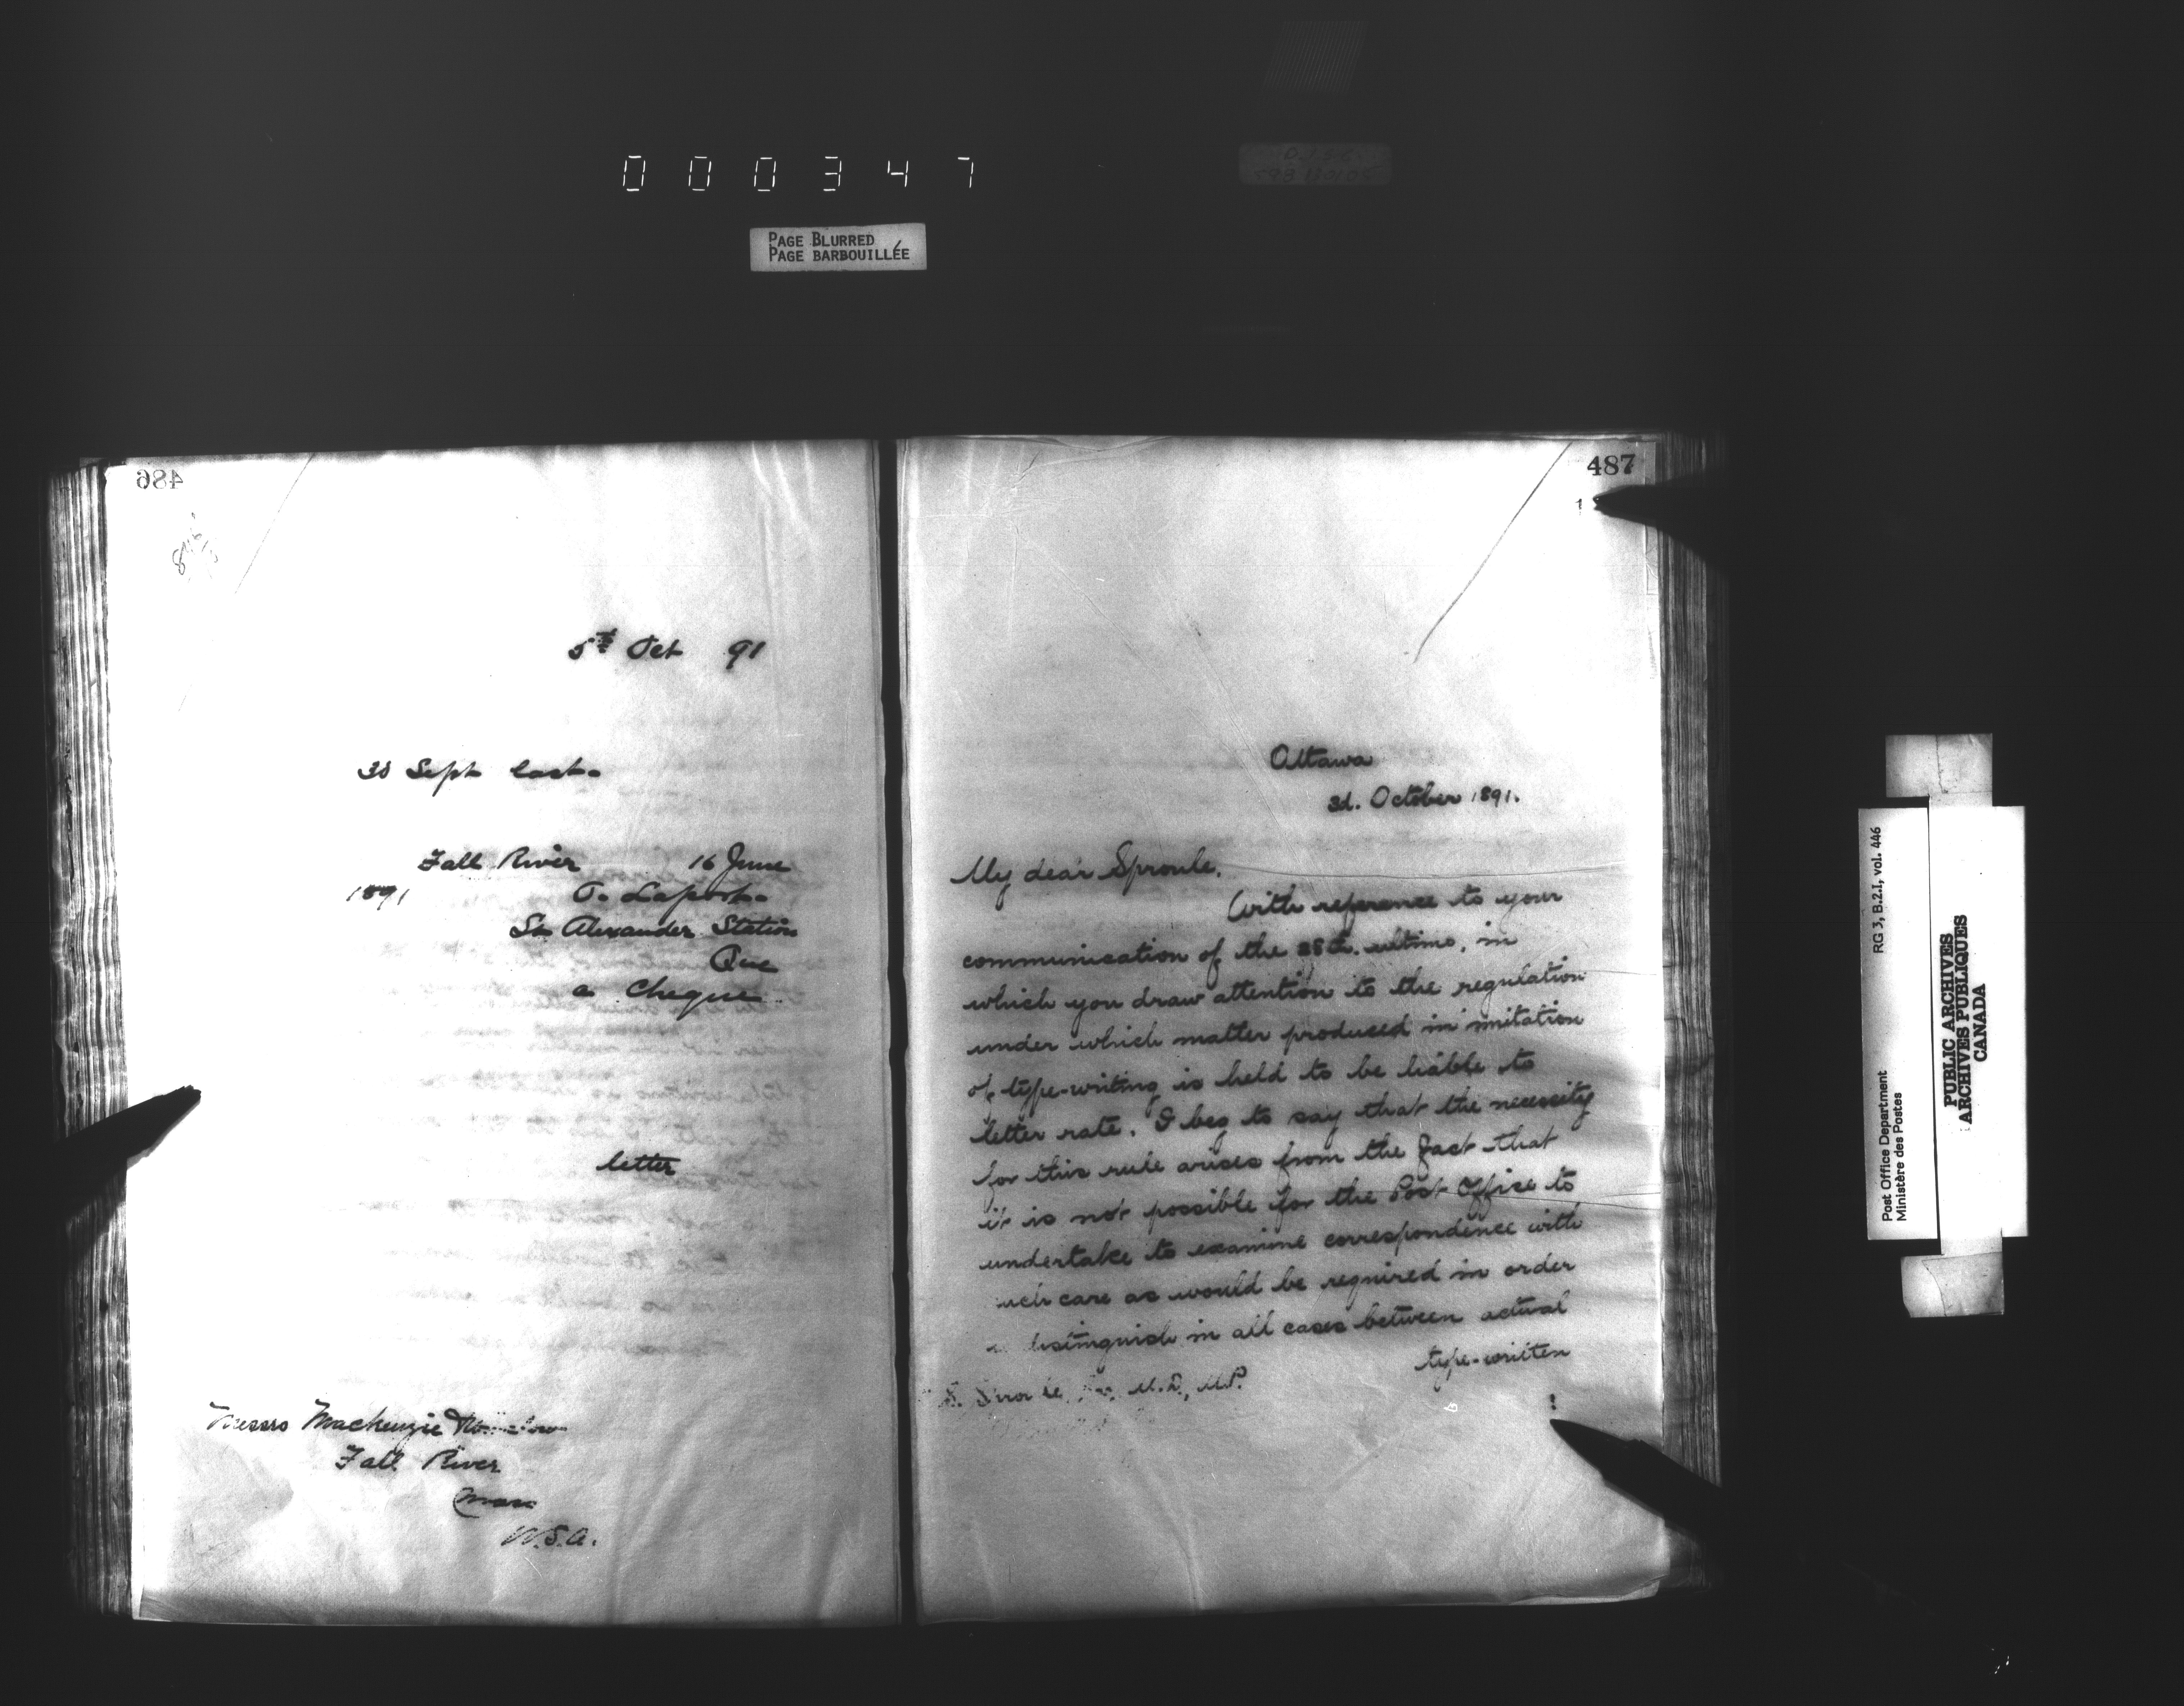 000347
PAGE BLURRED
PAGE BARBOUILLÉE
486
5th Oct 91
30 Sept last.
Fall River 16 June
1891 O. Laport.
St Alexander Station
Que
a Cheque
letter
Messrs Mackenzie
Fall River
Mass
U.S.A.
487
1
Ottawa
3d. October 1891.
My dear Sproule,
With reference to your
communication of the 28th. ultimo, in
which you draw attention to the regulation
under which matter produced in imitation
of type-writing is held to be liable to
letter rate, I beg to say that the necessity
for this rule arises from the fact that
it is not possible for the Post Office to
undertake to examine correspondence with
such care as would be required in order
distinguish in all cases between actual
type-written
M.D., M.P.
Post Office Department
Ministère des Postes
RG 3, B.2.I, vol. 446
PUBLIC ARCHIVES
ARCHIVES PUBLIQUES
CANADA